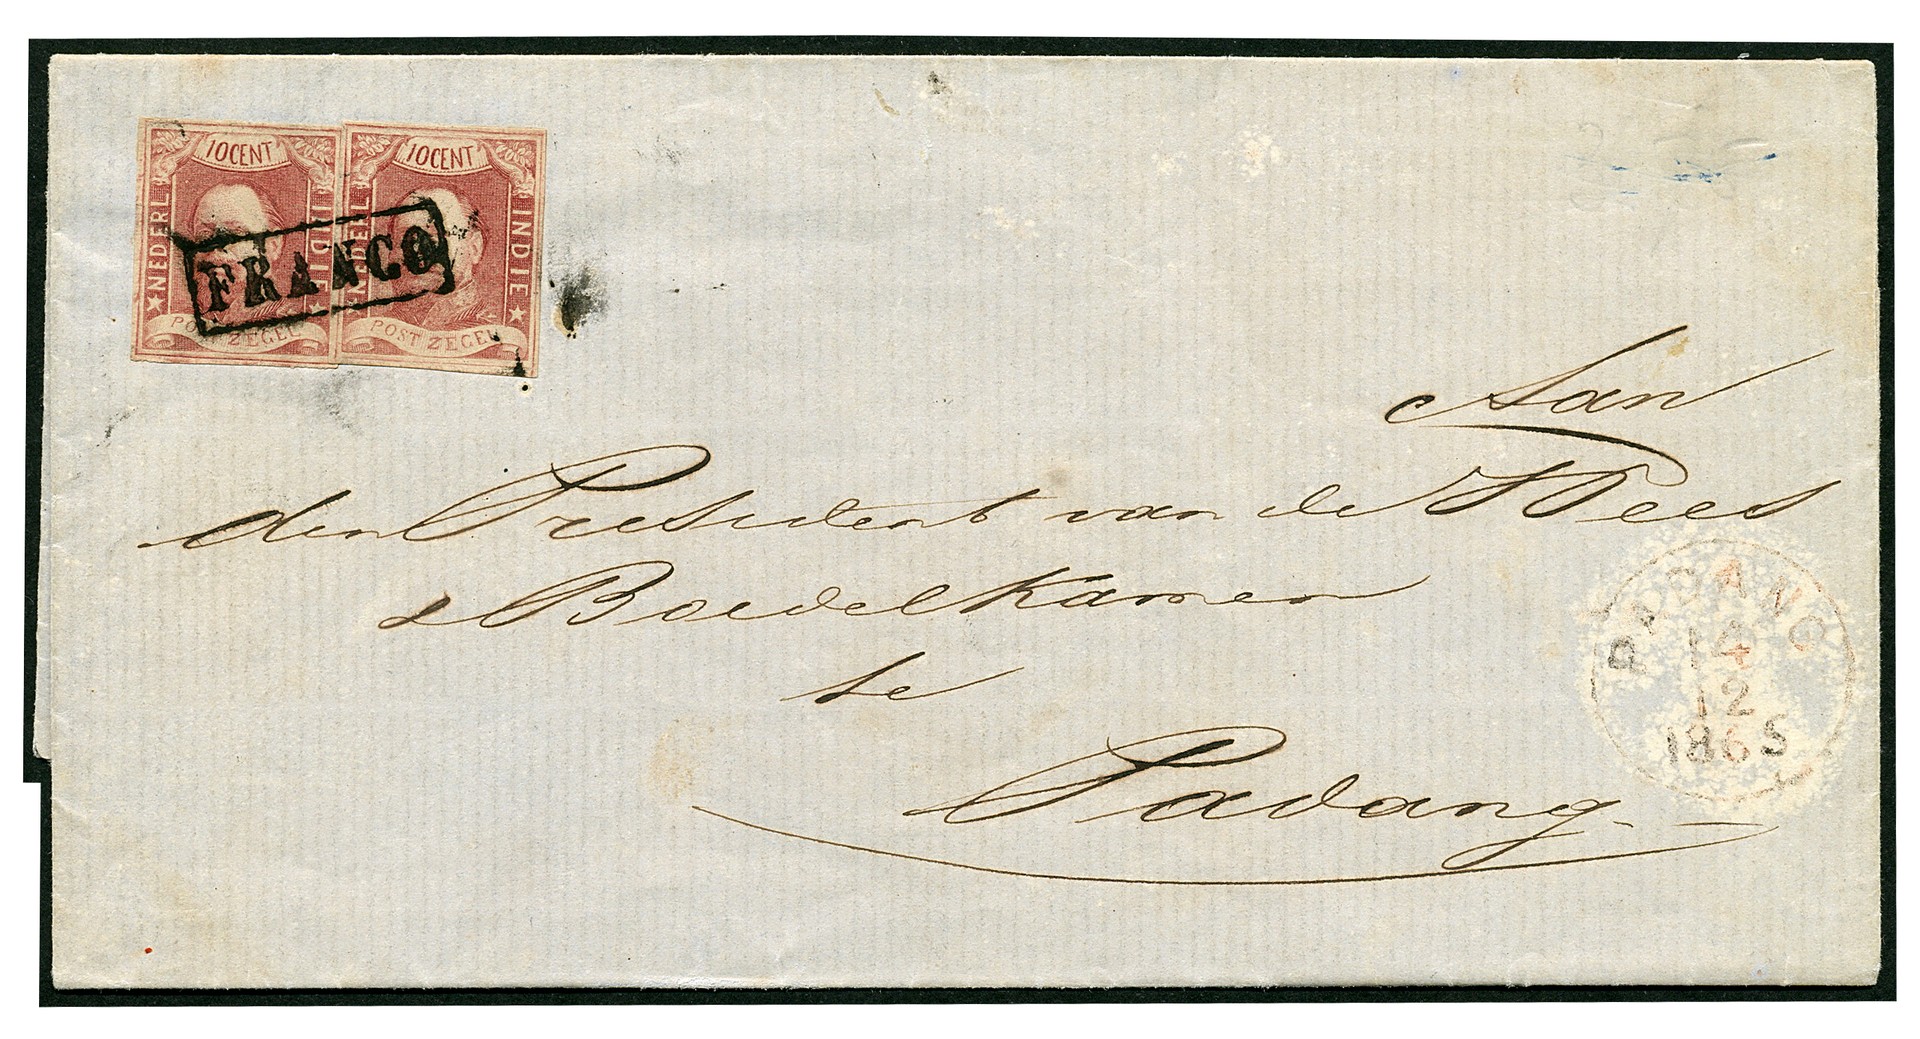 10CENT
NEDERL
INDIE
POSTZEGEL
10CENT
NEDERL
INDIE
POSTZEGEL
FRANCO
Aan
den President van de Wees
& Boedelkamer
te
Padang
PADANG
14
12
1865